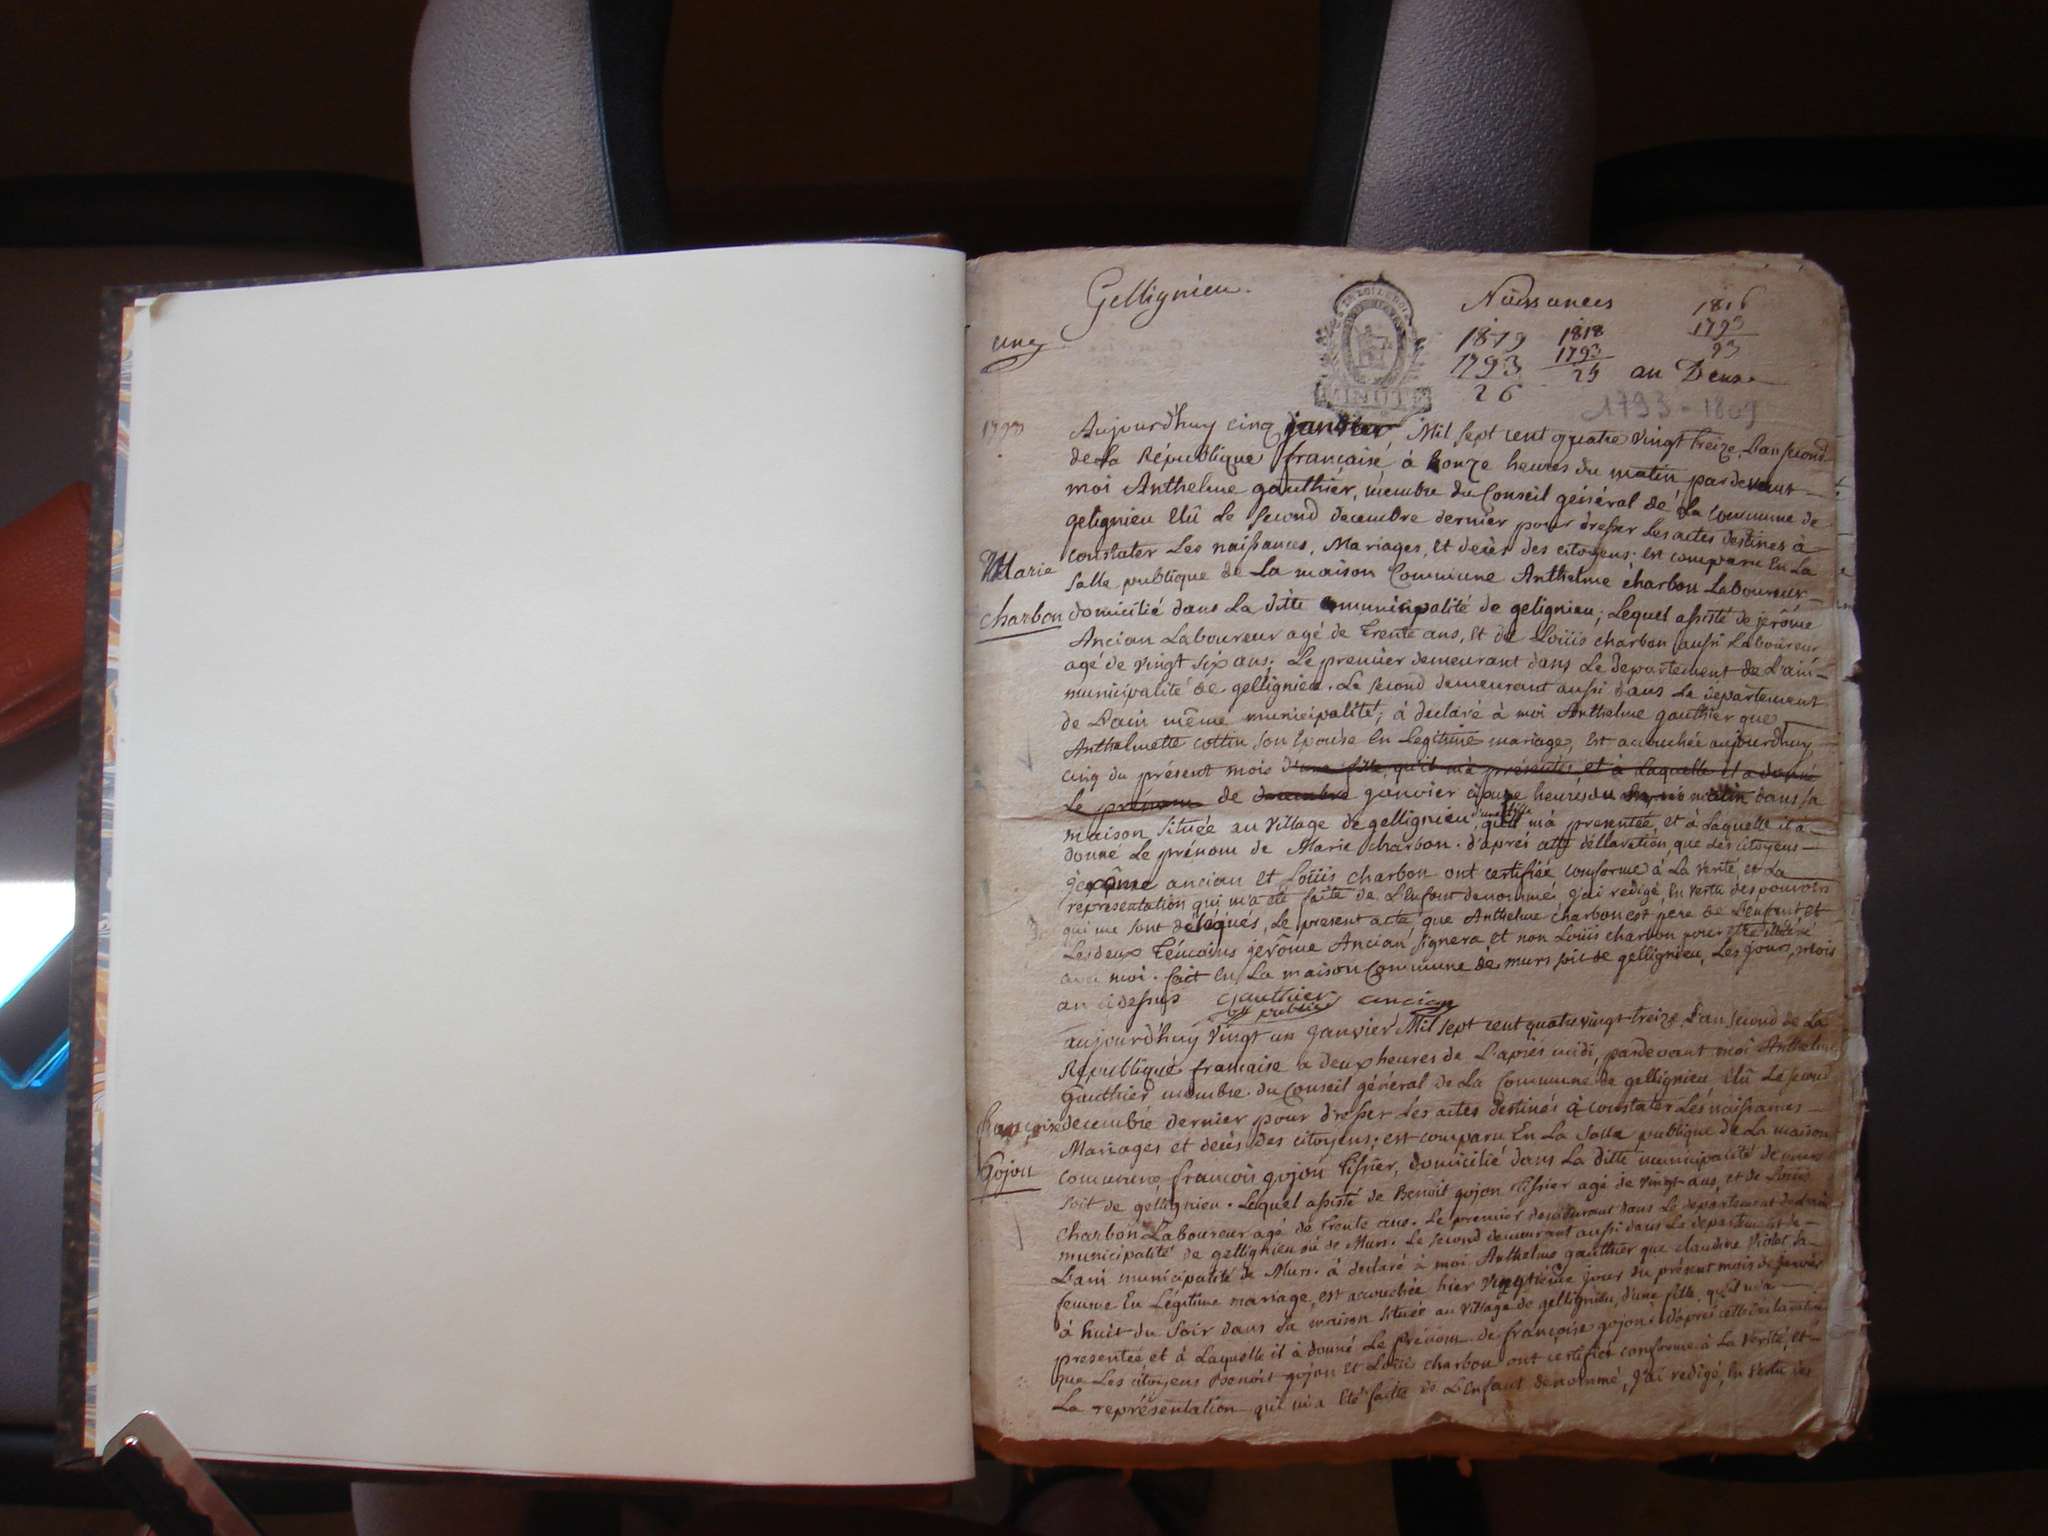 Gellignieu.
Naissances
1816
1793
93
1819
1793
26
1818
1793
25
an Deux
1793 - 1809
MINUTE
une
1793
Aujourd'huy cinq janvier Mil sept cent quatre vingt treize, L'an second
de La République française à honze heures du matin pardevant
moi Anthelme gauthier, membre du Conseil général de La commune de
gelignieu Elû Le second decembre dernier pour dresser Les actes destinés à
Marie
constater Les naissances, Mariages, et decès des citoyens. est comparu En La
salle publique de La maison Commune Anthelme charbon Laboureur
charbon
domicilié dans La ditte municipalité de gelignieu; Lequel assisté de jerôme
Ancian Laboureur agé de Trente ans, et de Loüis charbon aussi Laboureur
agé de vingt six ans; Le premier demeurant dans Le departement de L'ain
municipalité de gellignieu. Le second demeurant aussi dans Le departement
de L'ain même municipalité; à declaré à moi Anthelme gauthier que
Anthelmette cottin son Epouse En Legitime mariage, est accouchée aujourdhuy
cinq du présent mois d'une fille, qu'il m'a présentée et à Laquelle il a donné
Le prénom de decembre janvier à heures du matin dans sa
maison située au village de gellignieu, d'une fille qu'il m'à presentée, et à Laquelle il à
donné Le prénom de Marie charbon. d'après cette déclaration, que Les citoyens
jerôme ancian et Loüis charbon ont certifiée conforme à La verité, et La
representation qui m'a été faite de L'enfant denommé, j'ai redigé, En vertu des pouvoirs
qui me sont délégués, Le present acte, que Anthelme charbon est pere de L'enfant et
Les deux Témoins jerôme Ancian signera, et non Loüis charbon pour
avec moi. fait En La maison Commune de murs soit de gellignieu, Les jour, mois
an cidessus Gauthier ancian
off publice
aujourd'huy vingt un janvier Mil sept cent quatrevingt treize, L'an second de La
République française a deux heures de L'après midi, pardevant moi Anthelme
Gauthier membre du Conseil général de La Commune de gellignieu, Elû Le second
françoise
decembre dernier pour dresser Les actes destinés à constater Les naissances
Mariages et decès des citoyens. est comparu En La salle publique de La maison
Gojon
commune, françois gojon Tissier, domicilié dans La ditte municipalité de murs
soit de gellignieu. Lequel assisté de Benoit gojon Tissier agé de vingt ans, et de Loüis
charbon Laboureur agé de Trente ans. Le premier demeurant dans Le departement de L'ain
municipalité de gellignieu où de Murs. Le second demeurant aussi dans Le departement de
L'ain municipalité de Murs. à declaré à moi Anthelme gauthier que claudine violet sa
femme En Légitime mariage, est accouchée hier vingtième jour du présent mois de janvier
à huit du soir dans sa maison située au village de gellignieu, d'une fille, qu'il m'a
presentée, et à Laquelle il à donné Le Prénom de françoise gojon. d'après cette declaration
que Les citoyens Benoit gojon et Loüis charbon ont certifiée conforme à La verité, et
La représentation qui m'a été faite de L'enfant denommé, j'ai redigé, En vertu des